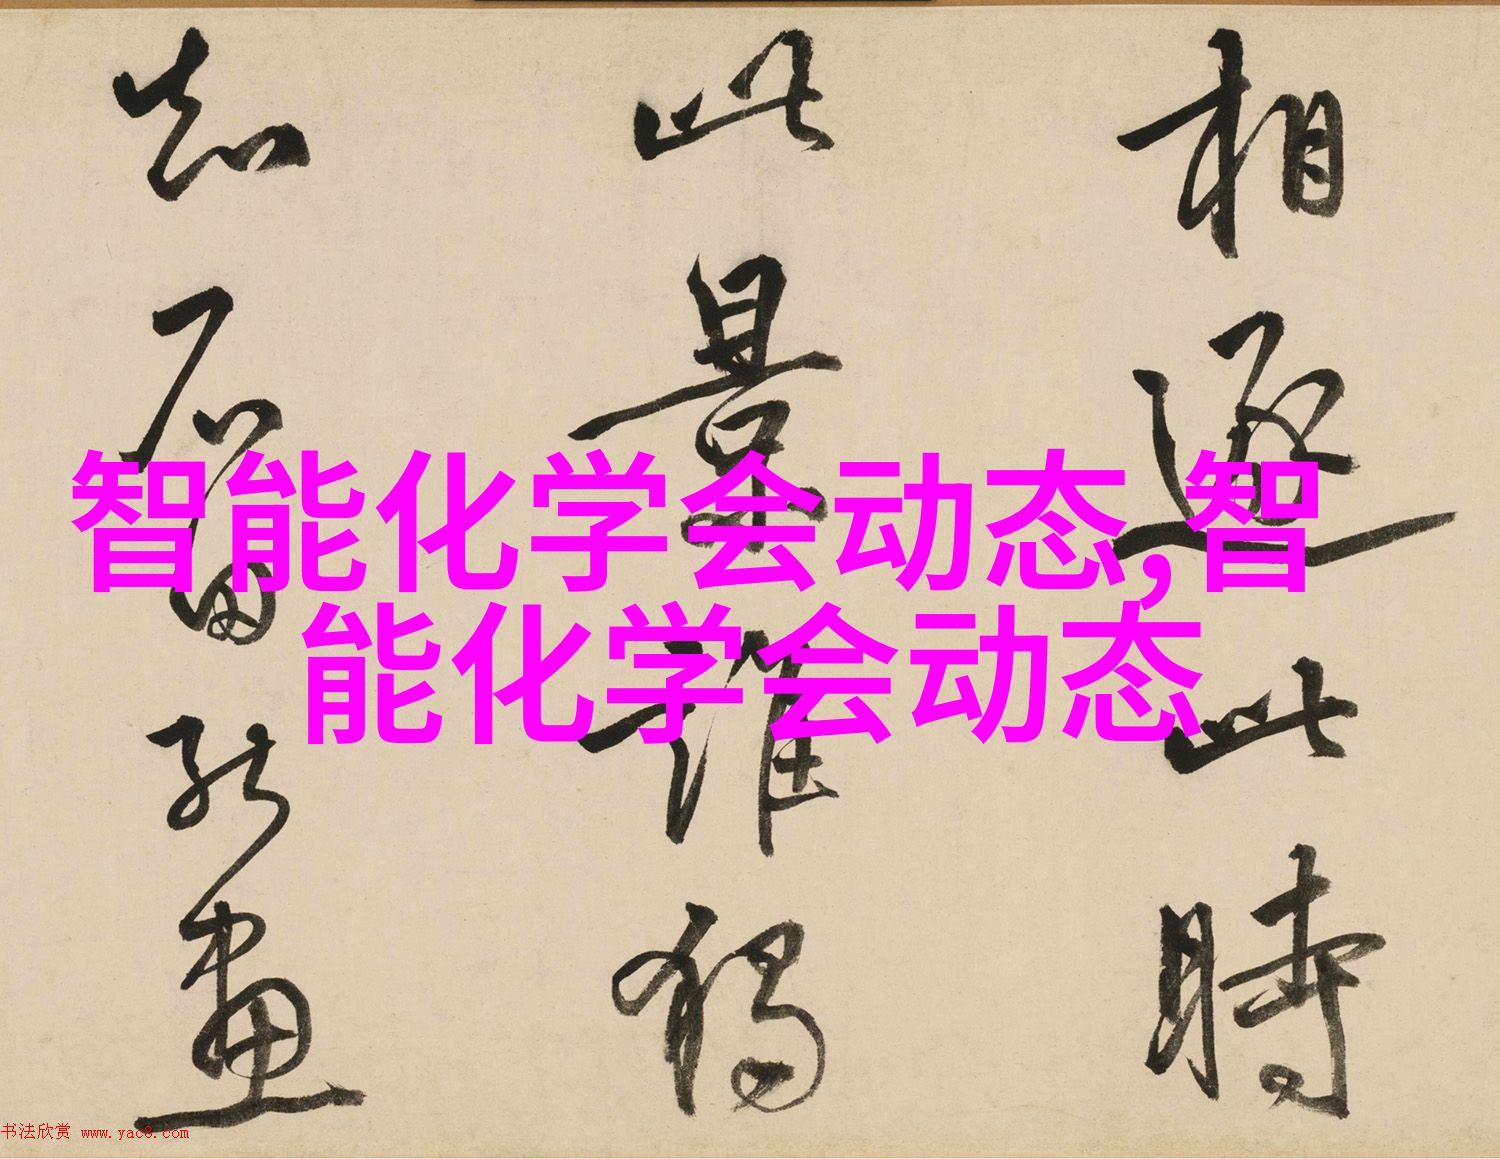 相逐此時
此景誰獨
知石田能畫
智能化学会动态,智
能化学会动态
书法欣赏 www.yac8.com